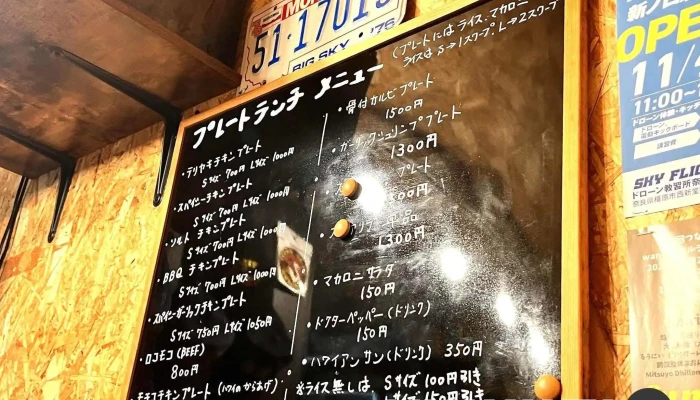 51-17013
BIG SKY '76
プレートランチ メニュー
(プレートにはライス、マカロニ
ライスは S→1スクープ L→2スクープ
・テリヤキチキンプレート
Sサイズ 700円 Lサイズ 1000円
・スパイシーチキンプレート
Sサイズ 700円 Lサイズ 1000円
・ソルト チキンプレート
Sサイズ 700円 Lサイズ 1000円
・BBQ チキンプレート
Sサイズ 700円 Lサイズ 1000円
・スパイシーガーリックチキンプレート
Sサイズ 750円 Lサイズ 1050円
・ロコモコ (BEEF)
800円
モチコチキンプレート (ハワイのからあげ)
・骨付カルビプレート
1500円
・ガーリックシュリンププレート
1300円
プレート
500円
単品
1300円
・マカロニサラダ
150円
・ドクターペッパー (ドリンク)
150円
・ハワイアンサン (ドリンク) 350円
※ライス無しは Sサイズ 100円引き
Lサイズ 150円引き
OPE
11/
11:00~
ドローン体験・キッ
ドローン、
電動キックボード
講習費
SKY FLIG
ドローン教習所奈
奈良県橿原市西新堂